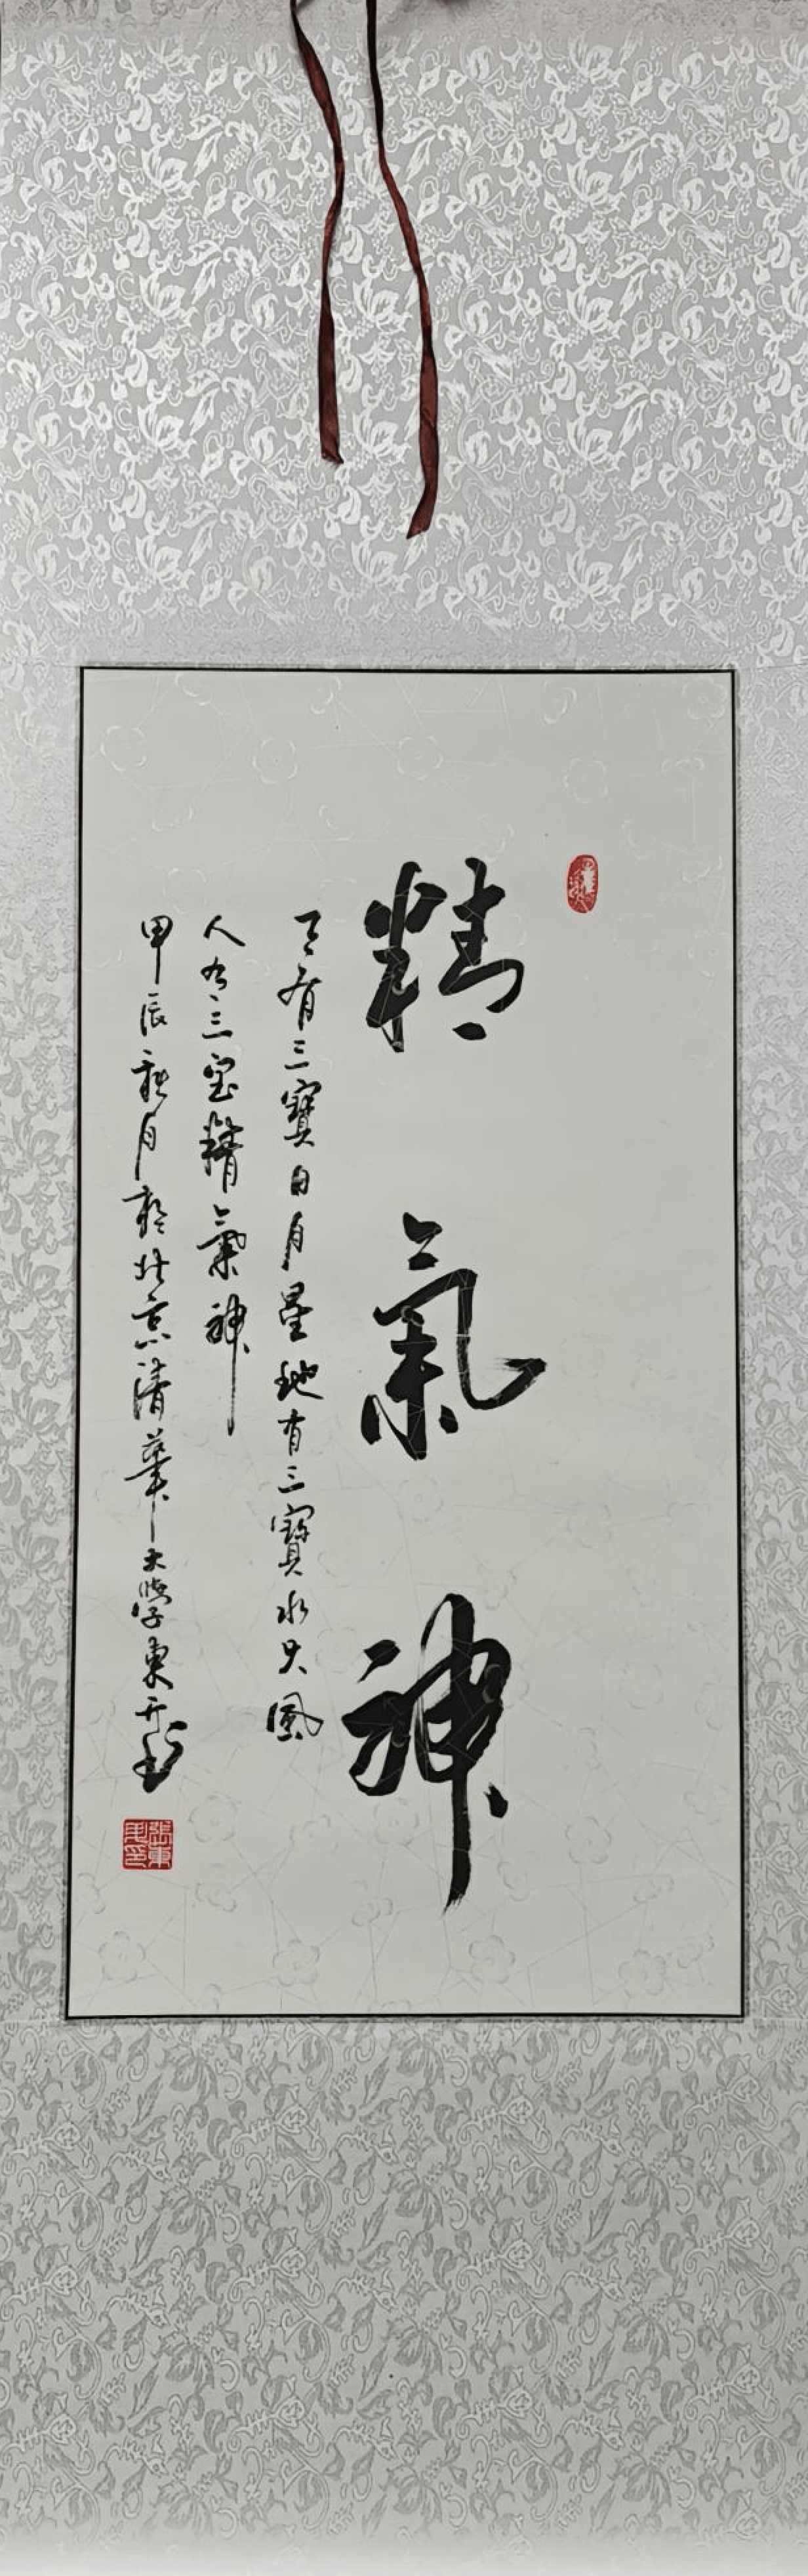 精氣神
天有三寶日月星地有三寶水火風
人有三宝精氣神
甲辰秋月於北京清華大學東開书
張東開印